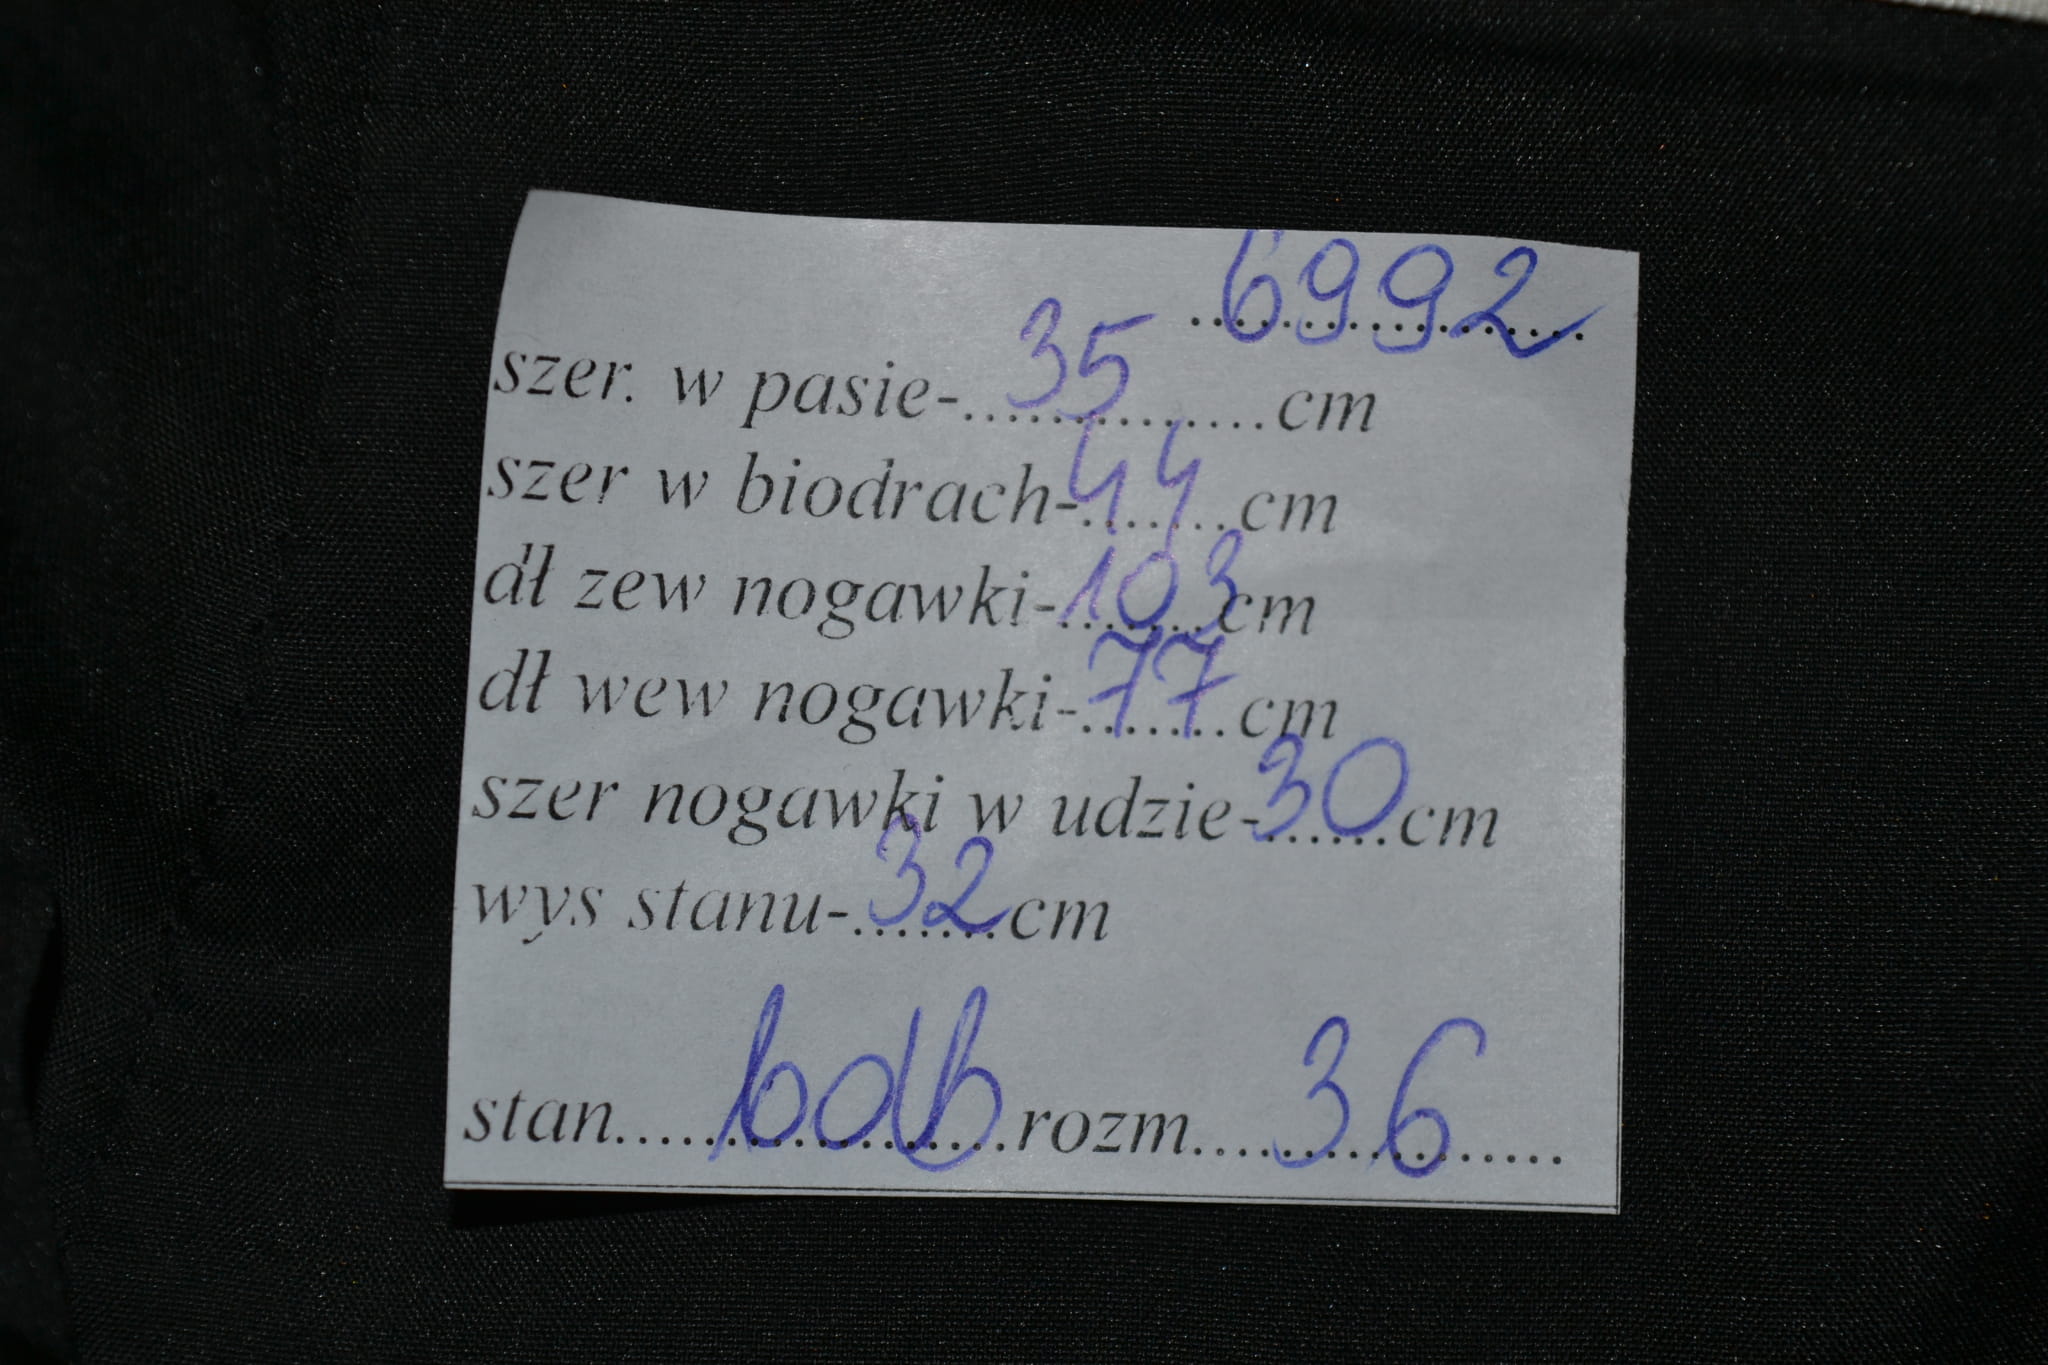 6992
szer. w pasie-...35...cm
szer w biodrach-44...cm
dł zew nogawki-103cm
dł wew nogawki-77cm
szer nogawki w udzie-30cm
wys stanu-32cm
stan...bdb...rozm...36...